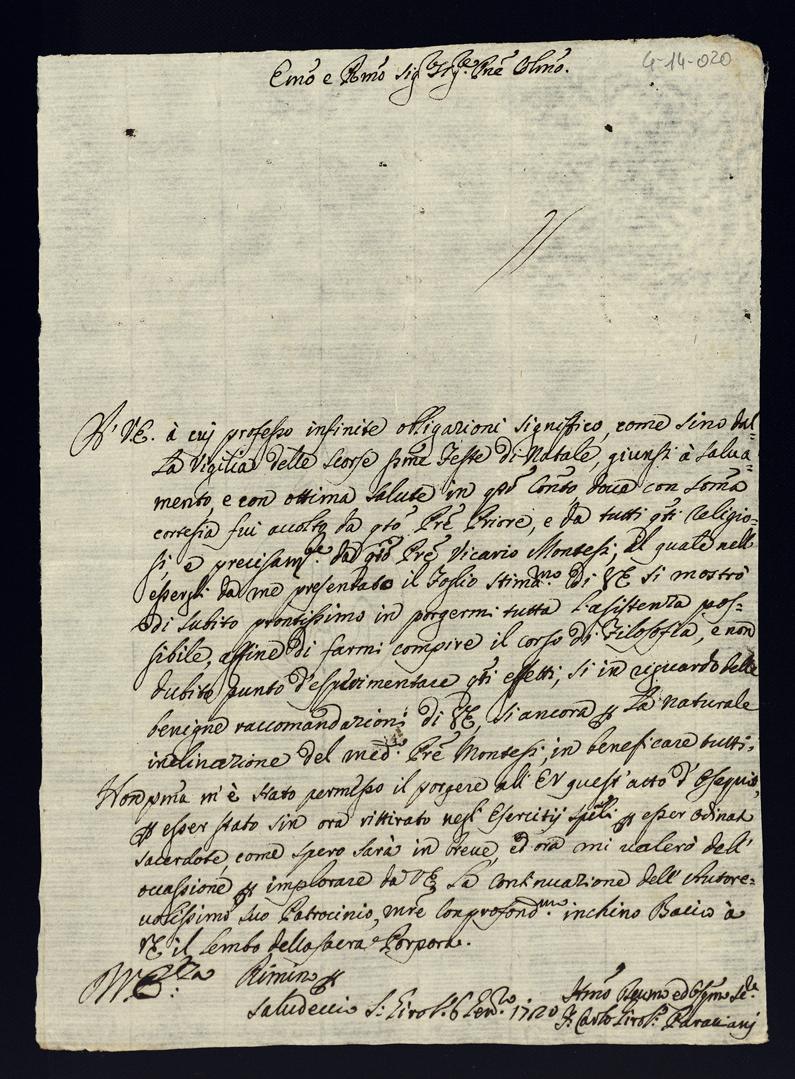 4-14-020
Emo e Rmo Sigre Sigre Pne Olmo.
A' VE. à cui professo infinite obligazioni significo, come sino dal=
la Vigilia delle scorse sme Feste di Natale, giunsi à salua=
mento, e con ottima salute in qto Conto doue con soma
cortesia fui accolto da qto Pre Priore, e da tutti qti Religio=
si, e precisamte da qto Pre Vicario Montesi, il quale nell'
essergli da me presentato il Foglio stimamo di VE si mostrò
di subito prontissimo in porgermi tutta l'assistenza pos=
sibile, affine di farmi compire il corso di Filosofia, e non
dubito punto d'esperimentare qti effetti, si in riguardo delle
benigne raccomandazioni di VE, si ancora p la naturale
inclinazione del medo Pre Montesi, in beneficare tutti.
Non pma m'è stato permesso il porgere all'EV quest'atto d'ossequio,
p esser stato sin ora rittirato negl'Esercitij spuli p esser ordinat
sacerdote, come spero sarà in breue, ed ora mi ualerò dell'
occassione p implorare da VE la continuazione dell'Autore=
uolissimo suo Patrocinio, mre con profondmo inchino Bacio à
VE il lembo della sacra Porpora.
Di V. Eza Rimino p
Saludeccio S. Girolo 6 Gen.ro 1720
Fr Carlo Girolo Paracianj